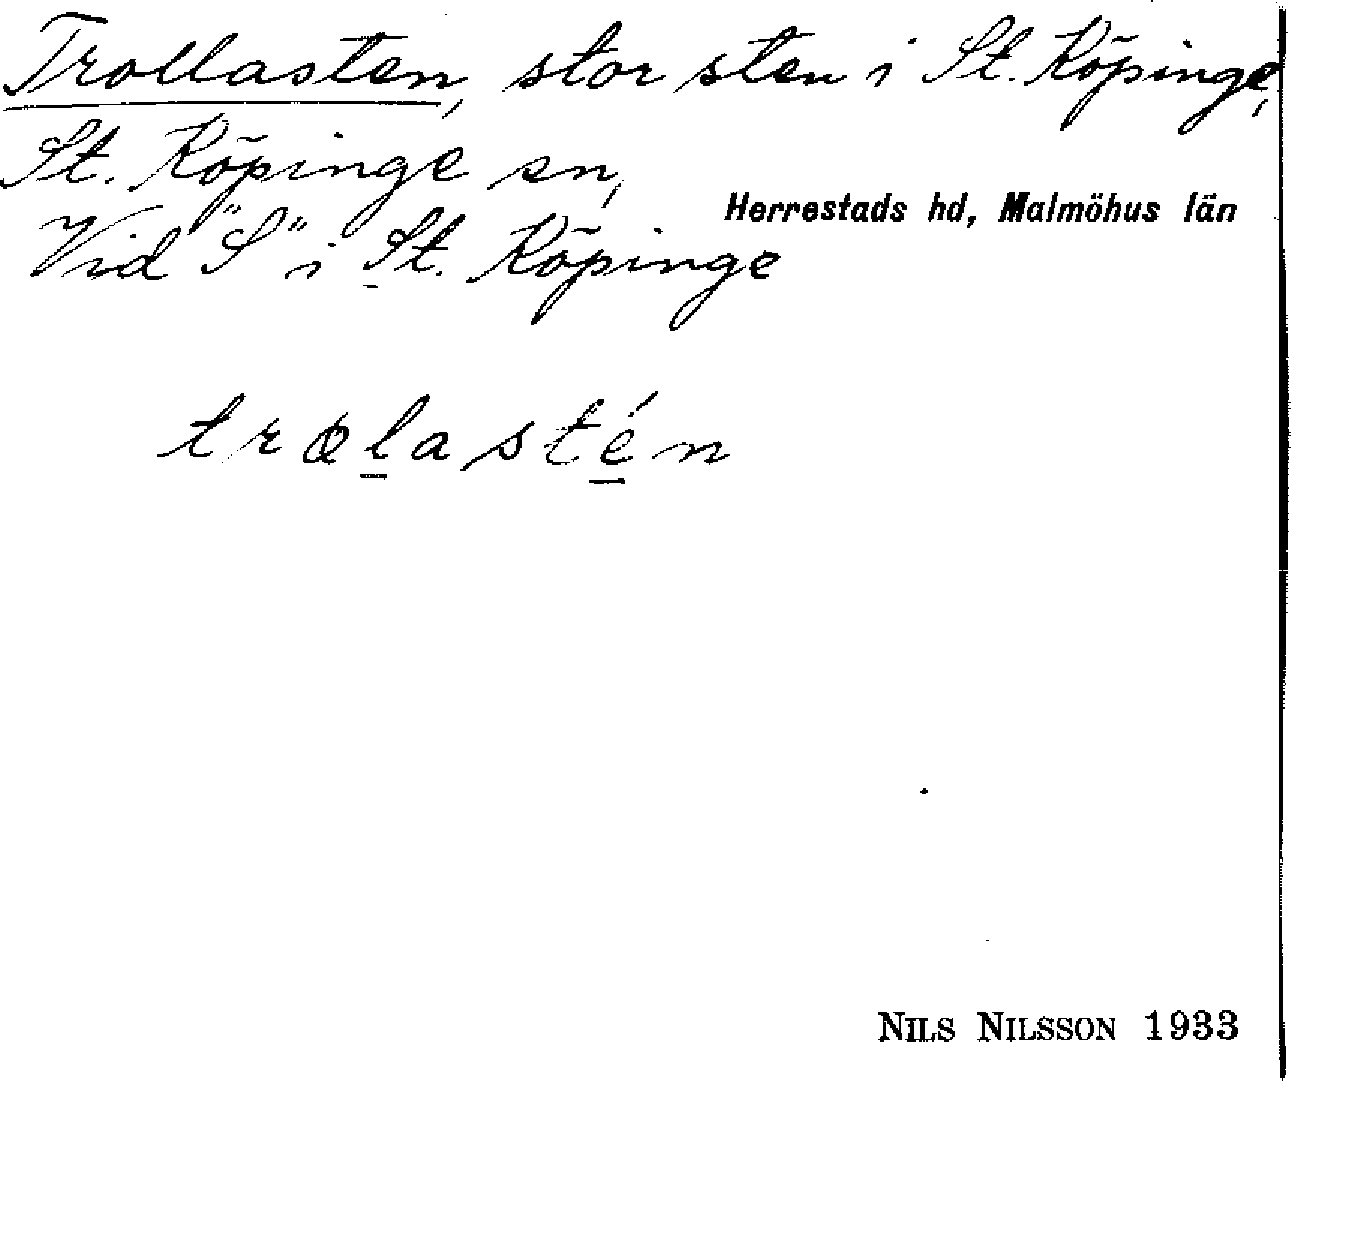 Trollasten, stor sten i St. Köpinge,
St. Köpinge sn,
Herrestads hd, Malmöhus län
Vid "S" i St. Köpinge
trɷl̲asté̲n
NILS NILSSON 1933